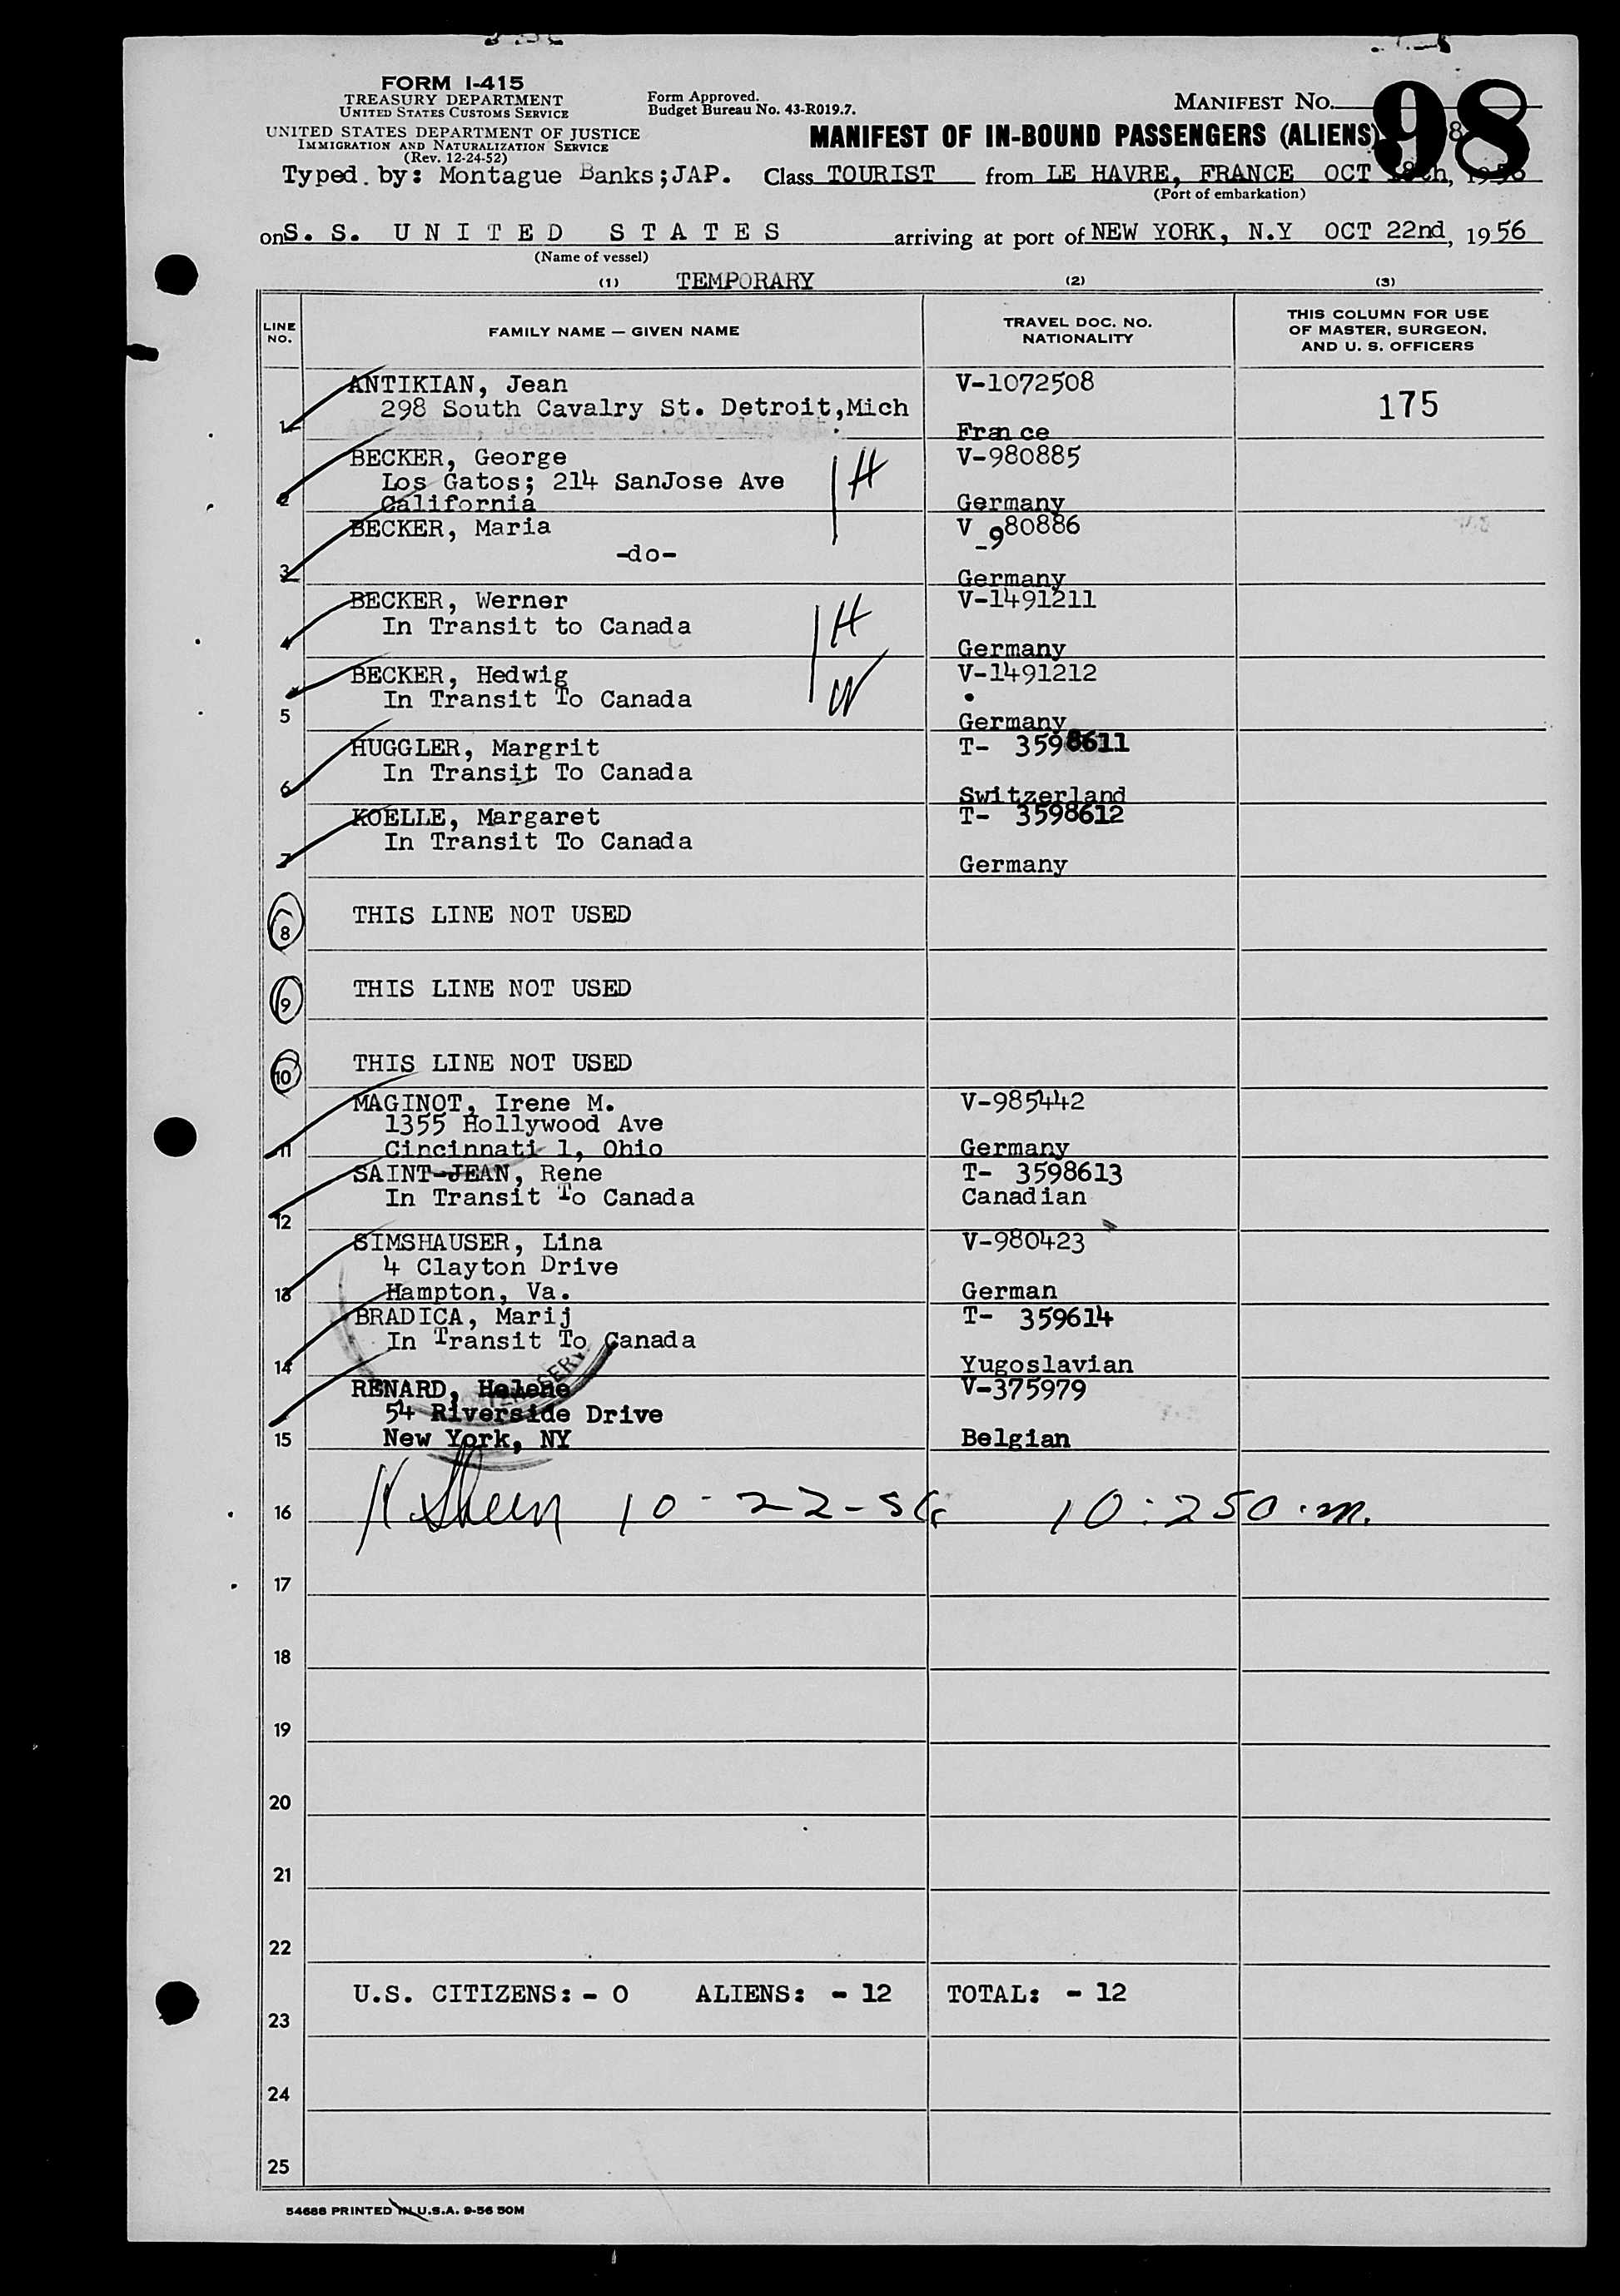 FORM I-415
TREASURY DEPARTMENT
UNITED STATES CUSTOMS SERVICE
UNITED STATES DEPARTMENT OF JUSTICE
IMMIGRATION AND NATURALIZATION SERVICE
(Rev. 12-24-52)
Form Approved.
Budget Bureau No. 43-R019.7.
MANIFEST NO. 98
MANIFEST OF IN-BOUND PASSENGERS (ALIENS)
Typed by: Montague Banks;JAP. Class TOURIST from LE HAVRE, FRANCE OCT
(Port of embarkation)
on S. S. UNITED STATES arriving at port of NEW YORK, N.Y OCT 22nd, 1956
(Name of vessel)
(1) TEMPORARY (2) (3)
LINE NO. FAMILY NAME — GIVEN NAME TRAVEL DOC. NO. NATIONALITY THIS COLUMN FOR USE OF MASTER, SURGEON, AND U. S. OFFICERS
1 ANTIKIAN, Jean V-1072508
298 South Cavalry St. Detroit,Mich 175
France
2 BECKER, George V-980885
Los Gatos; 214 SanJose Ave H
California Germany
3 BECKER, Maria V -980886
-do-
Germany
4 BECKER, Werner V-1491211
In Transit to Canada H
Germany
5 BECKER, Hedwig V-1491212
In Transit To Canada W
Germany
6 HUGGLER, Margrit T- 3598611
In Transit To Canada
Switzerland
7 KOELLE, Margaret T- 3598612
In Transit To Canada
Germany
8 THIS LINE NOT USED
9 THIS LINE NOT USED
10 THIS LINE NOT USED
11 MAGINOT, Irene M. V-985442
1355 Hollywood Ave
Cincinnati 1, Ohio Germany
12 SAINT-JEAN, Rene T- 3598613
In Transit To Canada Canadian
13 SIMSHAUSER, Lina V-980423
4 Clayton Drive
Hampton, Va. German
14 BRADICA, Marij T- 359614
In Transit To Canada
Yugoslavian
15 RENARD, Helene V-375979
54 Riverside Drive
New York, NY Belgian
16 10-22-56 10:25 a.m.
17
18
19
20
21
22
23 U.S. CITIZENS: - 0 ALIENS: - 12 TOTAL: - 12
24
25
54688 PRINTED IN U.S.A. 9-56 50M